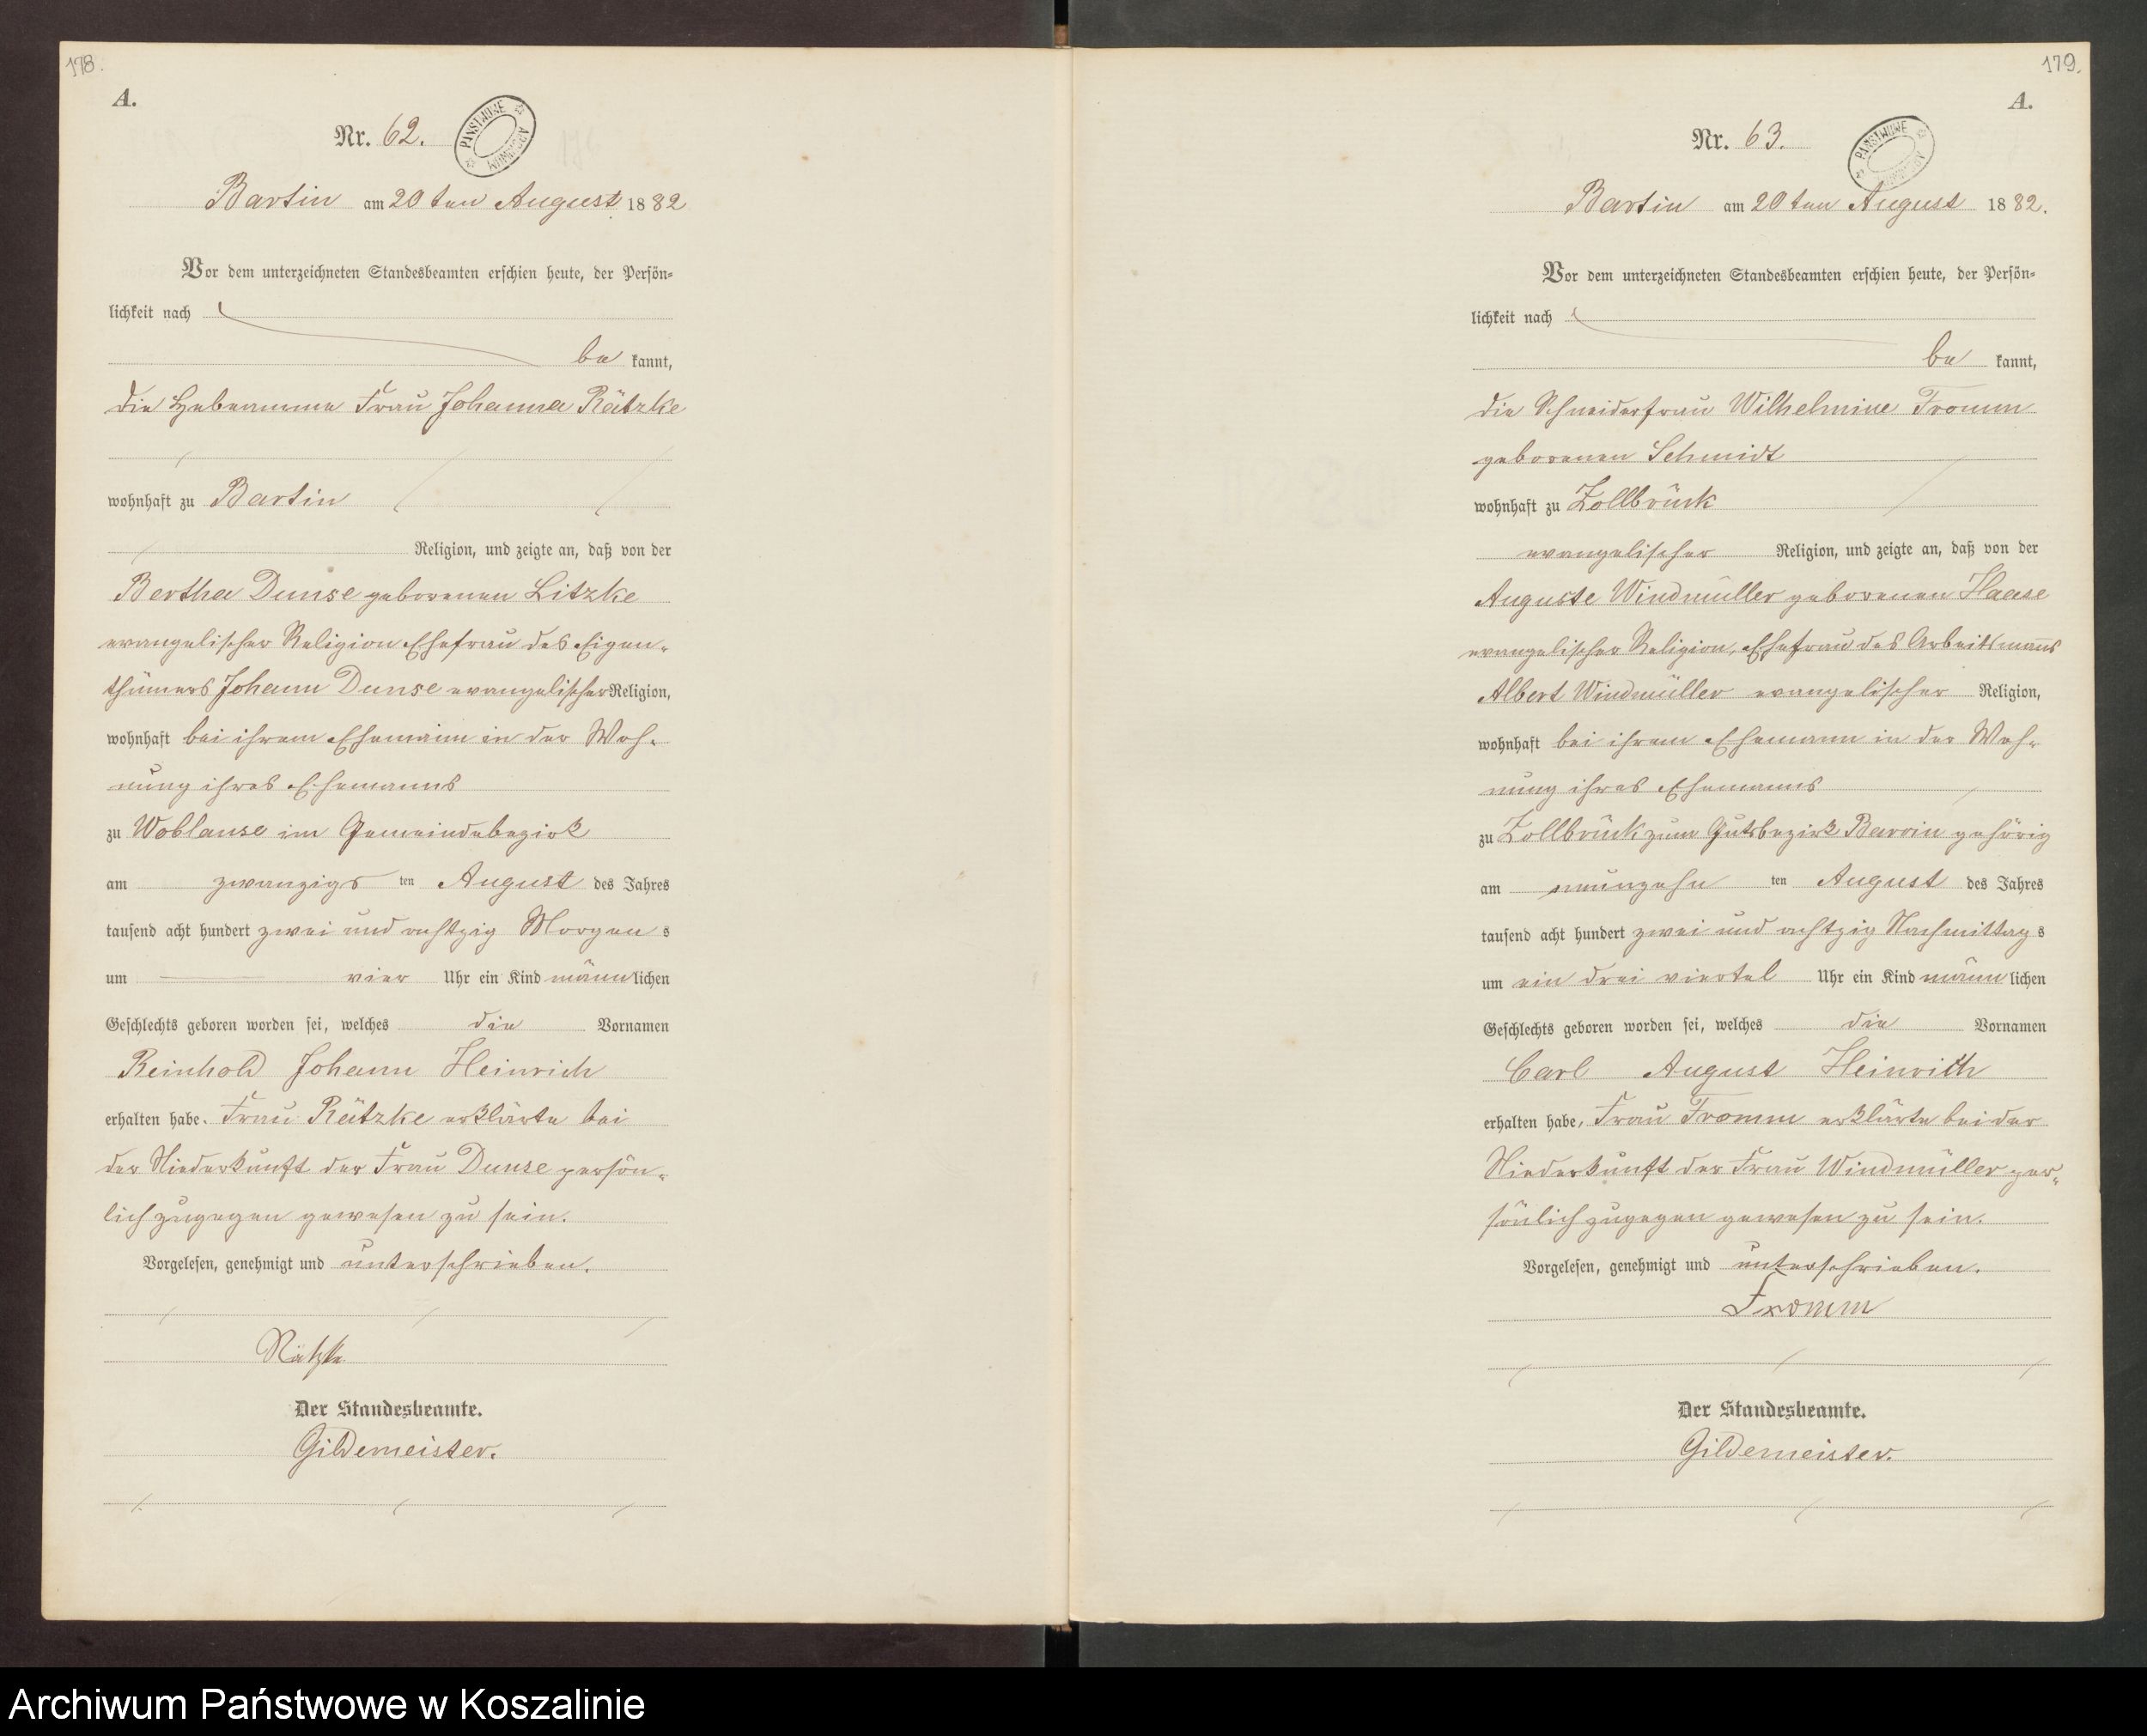 178.
A.
Nr. 62.
PAŃSTWOWE
Bartin am 20ten August 1882
Vor dem unterzeichneten Standesbeamten erschien heute, der Persön-
lichkeit nach
be kannt,
die Hebeamme Frau Johanna Rätzke
wohnhaft zu Bartin
Religion, und zeigte an, daß von der
Bertha Dunse geborenen Litzke
evangelischer Religion Ehefrau des Eigen-
thümers Johann Dunse evangelischer Religion,
wohnhaft bei ihrem Ehemann in der Woh-
nung ihres Ehemanns
zu Woblanse im Gemeindebezirk
am zwanzigs ten August des Jahres
tausend acht hundert zwei und achtzig Morgen s
um vier Uhr ein Kind männ lichen
Geschlechts geboren worden sei, welches die Vornamen
Reinhold Johann Heinrich
erhalten habe. Frau Rätzke erklärte bei
der Niederkunft der Frau Dunse persön-
lich zugegen gewesen zu sein.
Vorgelesen, genehmigt und unterschrieben.
Rätzke
Der Standesbeamte.
Gildemeister.
179.
A.
Nr. 63.
PAŃSTWOWE
Bartin am 20ten August 1882.
Vor dem unterzeichneten Standesbeamten erschien heute, der Persön-
lichkeit nach
be kannt,
die Schneiderfrau Wilhelmine Fromm
geborenen Schmidt
wohnhaft zu Zollbrück
evangelischer Religion, und zeigte an, daß von der
Auguste Windmüller geborenen Haase
evangelischer Religion, Ehefrau des Arbeitsmanns
Albert Windmüller evangelischer Religion,
wohnhaft bei ihrem Ehemann in der Woh-
nung ihres Ehemanns
zu Zollbrück zum Gutsbezirk Barvin gehörig
am neunzehn ten August des Jahres
tausend acht hundert zwei und achtzig Nachmittag s
um ein drei viertel Uhr ein Kind männ lichen
Geschlechts geboren worden sei, welches die Vornamen
Carl August Heinrich
erhalten habe, Frau Fromm erklärte bei der
Niederkunft der Frau Windmüller per-
sönlich zugegen gewesen zu sein.
Vorgelesen, genehmigt und unterschrieben.
Fromm
Der Standesbeamte.
Gildemeister.
Archiwum Państwowe w Koszalinie